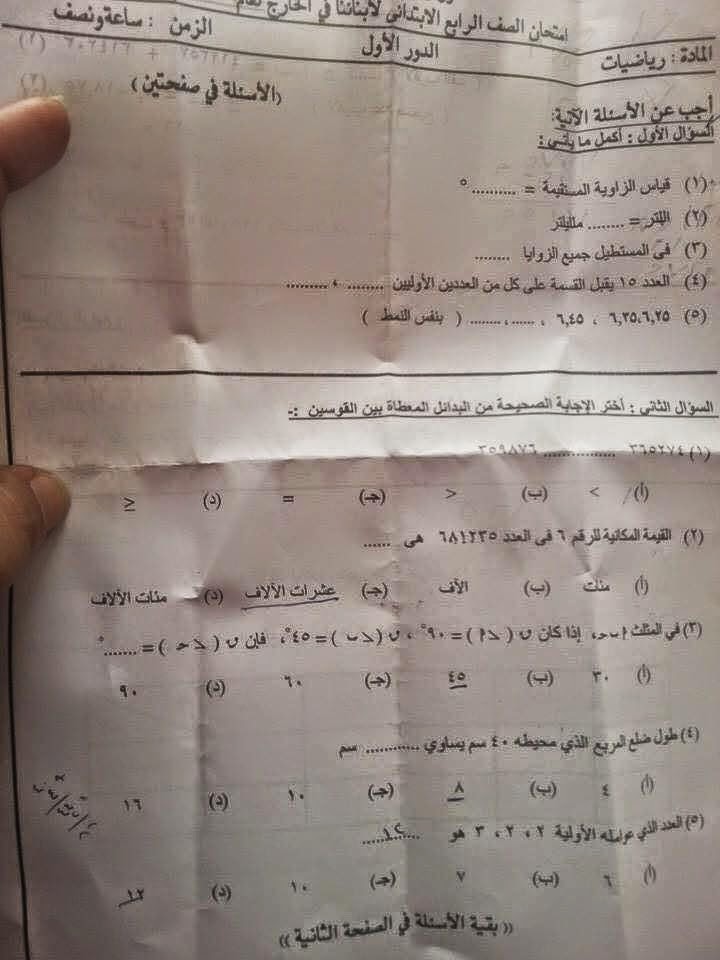 امتحان الصف الرابع الابتدائى لأبنائنا في الخارج لعام
المادة : رياضيات الدور الأول الزمن : ساعة ونصف
(الأسئلة في صفحتين)
أجب عن الأسئلة الآتية:
السؤال الأول : أكمل ما يأتى :
(١) قياس الزاوية المستقيمة = .......... °
(٢) اللتر = ........ ملليلتر
(٣) فى المستطيل جميع الزوايا ........
(٤) العدد ١٥ يقبل القسمة على كل من العددين الأوليين ........ ، .........
(٥) ٦,٢٥ ، ٦,٣٥ ، ٦,٤٥ ، ...... ، ........ ( بنفس النمط )
السؤال الثانى : أختر الإجابة الصحيحة من البدائل المعطاة بين القوسين :-
(١) ٣٦٥٢٧٤ ............... ٣٥٩٨٧٦
(أ) > (ب) < (جـ) = (د) ≥
(٢) القيمة المكانية للرقم ٦ فى العدد ٦٨١٢٣٥ هى ......
(أ) مئات (ب) الآف (جـ) عشرات الألاف (د) مئات الألاف
(٣) في المثلث ا ب جـ، إذا كان ق (∠ا) = ٩٠° ، ق (∠ب) = ٤٥° ، فإن ق (∠جـ) = ....... °
(أ) ٣٠ (ب) ٤٥ (جـ) ٦٠ (د) ٩٠
(٤) طول ضلع المربع الذي محيطه ٤٠ سم يساوي ............ سم
(أ) ٤ (ب) ٨ (جـ) ١٠ (د) ١٦
(٥) العدد الذي عوامله الأولية ٢ ، ٢ ، ٣ هو ....١٢....
(أ) ٦ (ب) ٧ (جـ) ١٠ (د) ١٢
(( بقية الأسئلة في الصفحة الثانية ))